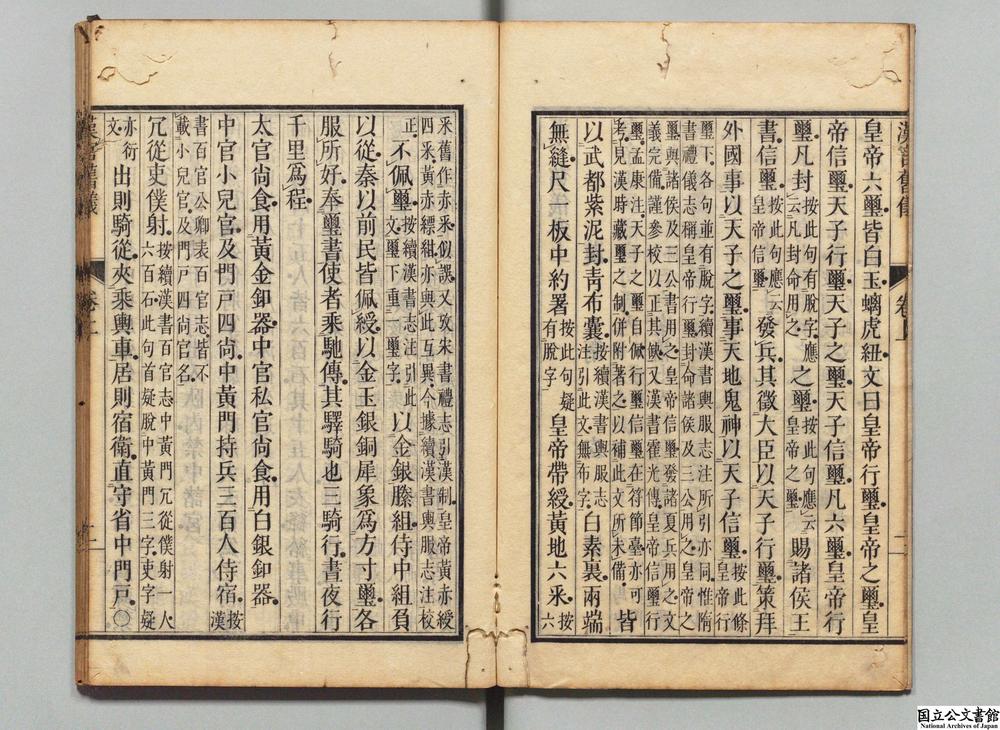 漢官舊儀 卷上 二
皇帝六璽皆白玉螭虎紐文曰皇帝行璽皇帝之璽皇
帝信璽天子行璽天子之璽天子信璽凡六璽皇帝行
璽凡封按此句有脫字應云凡封命用之之璽按此句應云皇帝之璽賜諸侯王
書信璽按此句應云皇帝信璽發兵其徵大臣以天子行璽策拜
外國事以天子之璽事天地鬼神以天子信璽按此條皇帝行
璽下各句並有脫字續漢書輿服志注所引亦同惟隋
書禮儀志稱皇帝行璽封命諸侯及三公用之皇帝之
璽與諸侯及三公書用之皇帝信璽發諸夏兵用之文
義完備謹參校以正其缺又漢書霍光傳皇帝信璽行
璽孟康注天子之璽自佩行璽信璽在符節臺亦可
考見漢時藏璽之制併附著之以補此文所未備皆
以武都紫泥封青布囊按續漢書輿服志注引此文無布字白素裏兩端
無縫尺一板中約署按此句疑有脫字皇帝帶綬黃地六采按六
采舊作赤采似誤又攷宋書禮志引漢制皇帝黃赤綬
四采黃赤縹紺亦與此互異今據續漢書輿服志注校
正不佩璽按續漢書志注引此文璽下重璽字以金銀縢組侍中組負
以從秦以前民皆佩綬以金玉銀銅犀象爲方寸璽各
服所好奉璽書使者乘馳傳其驛騎也三騎行晝夜行
千里爲程
太官尙食用黃金釦器中官私官尙食用白銀釦器
中官小兒官及門戸四尙中黃門持兵三百人侍宿按漢
書百官公卿表百官志皆不載小兒官及門戸四尙官名
冗從吏僕射按續漢書百官志中黃門冗從僕射一人六百石此句首疑脫中黃門三字吏字疑
亦衍文出則騎從夾乘輿車居則宿衛直守省中門戸〇
漢官舊儀 卷上 二
国立公文書館
National Archives of Japan